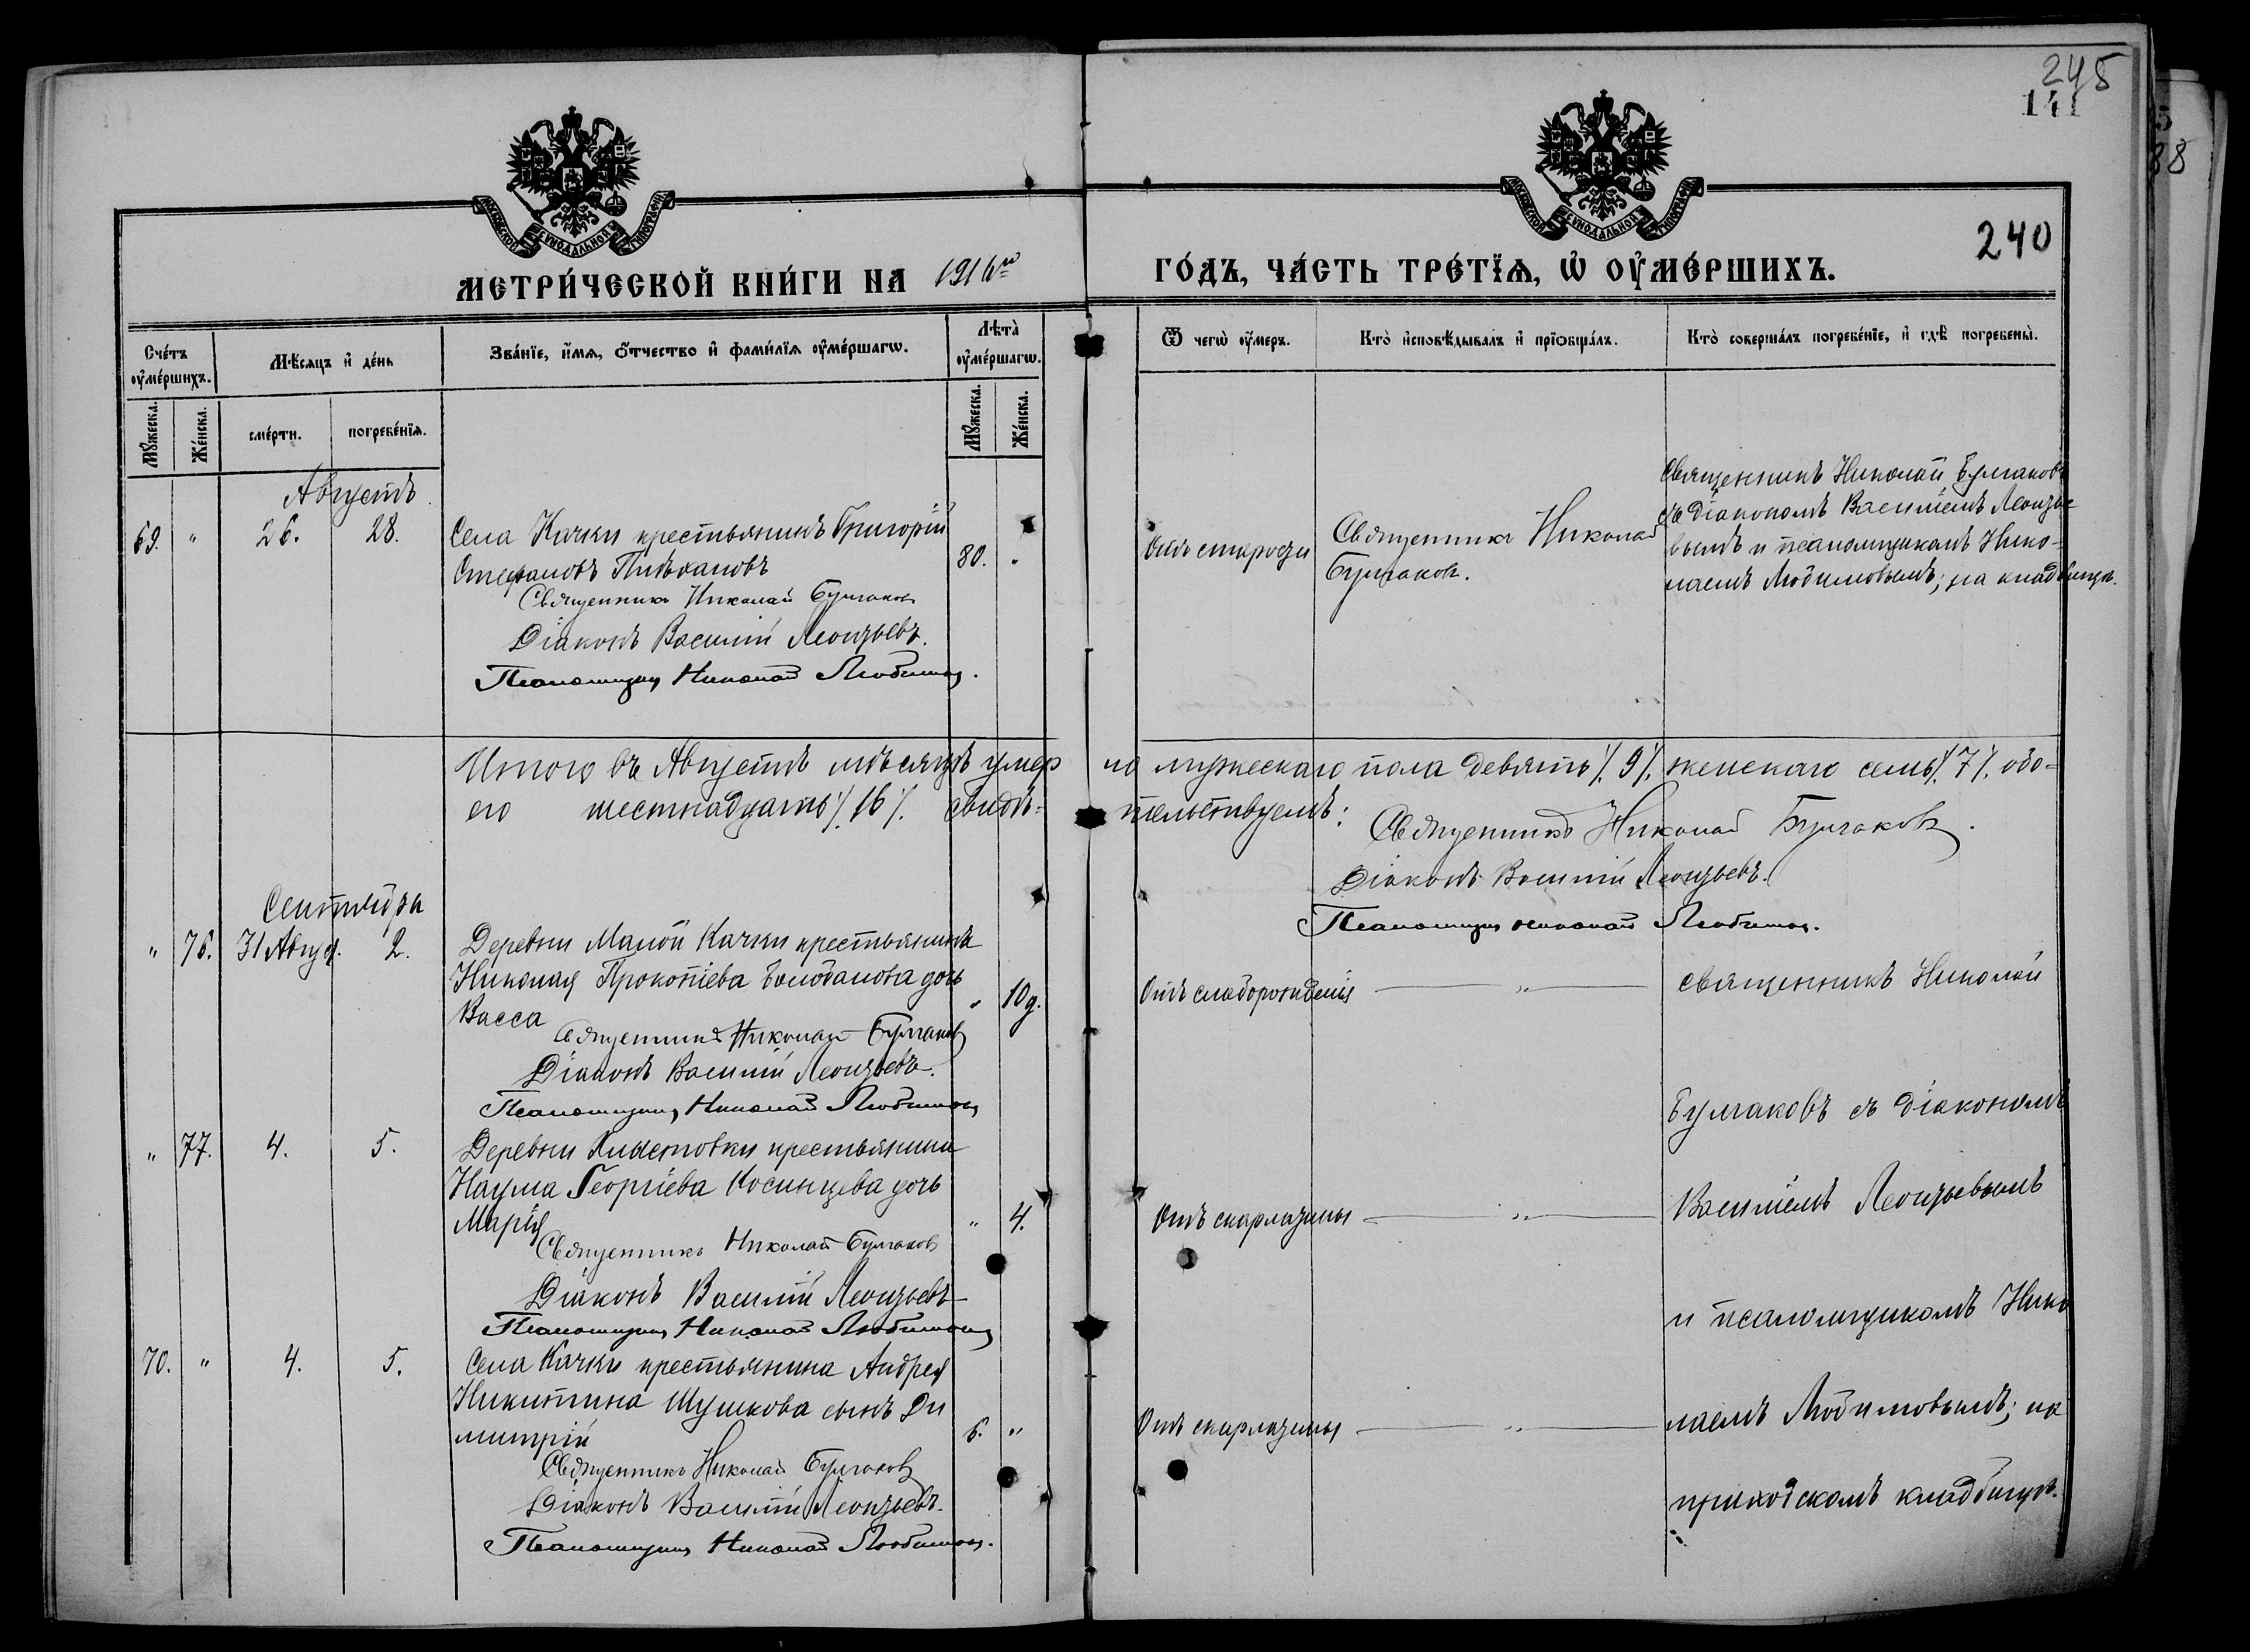 245
141
5
88
240
МОСКОВСКОЙ СѴНОДАЛЬНОЙ ТИПОГРАФІИ
МОСКОВСКОЙ СѴНОДАЛЬНОЙ ТИПОГРАФІИ
МЕТРИ́ЧЕСКОЙ КНИ́ГИ НА 1916й ГО́ДЪ, ЧА́СТЬ ТРЕ́ТЇѦ, Ѡ҆ ОУ҆МЕ́РШИХЪ.
Сче́тъ оу҆ме́ршихъ.
Мꙋ́жеска.
Же́нска.
Мѣ́сѧцъ и҆ де́нь
сме́рти.
погребе́нїѧ.
Зва́нїе, и҆́мѧ, ѻ҆́тчество и҆ фами́лїѧ оу҆ме́ршагѡ.
Лѣта̀ оу҆ме́ршагѡ.
Мꙋ́жеска.
Же́нска.
Ѿ чегѡ̀ оу҆́меръ.
Кто̀ и҆сповѣ́дывалъ и҆ прїѡбща́лъ.
Кто̀ соверша́лъ погребе́нїе, и҆ гдѣ̀ погребены̀.
Августъ
69. " 26. 28.
Села Качки крестьянинъ Григорій
Стефановъ Пишхановъ
80. "
Священникъ Николай Булгаковъ
Діаконъ Василій Леонтьевъ.
Псаломщикъ Николай Любимовъ.
Отъ старости
Священникъ Николай
Булгаковъ.
Священникъ Николай Булгаковъ
съ діакономъ Василіемъ Леонтье-
вымъ и псаломщикомъ Нико-
лаемъ Любимовымъ; на кладбищѣ.
Итого въ Августѣ мѣсяцѣ умерло мужескаго пола девять /. 9 /. женскаго семь /. 7 /. обо-
его шестнадцать /. 16 /. свидѣтельствуемъ:
Священникъ Николай Булгаковъ.
Діаконъ Василій Леонтьевъ.
Псаломщикъ Николай Любимовъ.
Сентября
" 76. 31 Авгус. 2.
Деревни Малой Качки крестьянина
Николая Прокопіева дочь
Васса
" 10 д.
Священникъ Николай Булгаковъ
Діаконъ Василій Леонтьевъ.
Псаломщикъ Николай Любимовъ
Отъ слаборожденія
"
священникъ Николай
Булгаковъ съ діакономъ
" 77. 4. 5.
Деревни Хлыстовки крестьянина
Наума Георгіева Косинцева дочь
Марія
" 4.
Священникъ Николай Булгаковъ
Діаконъ Василій Леонтьевъ
Псаломщикъ Николай Любимовъ
Отъ скарлатины
"
Василіемъ Леонтьевымъ
и псаломщикомъ Нико
70. " 4. 5.
Села Качки крестьянина Андрея
Никитина Шушкова сынъ Ди
митрій
6. "
Священникъ Николай Булгаковъ
Діаконъ Василій Леонтьевъ.
Псаломщикъ Николай Любимовъ.
Отъ скарлатины
"
лаемъ Любимовымъ; на
приходскомъ кладбищѣ.